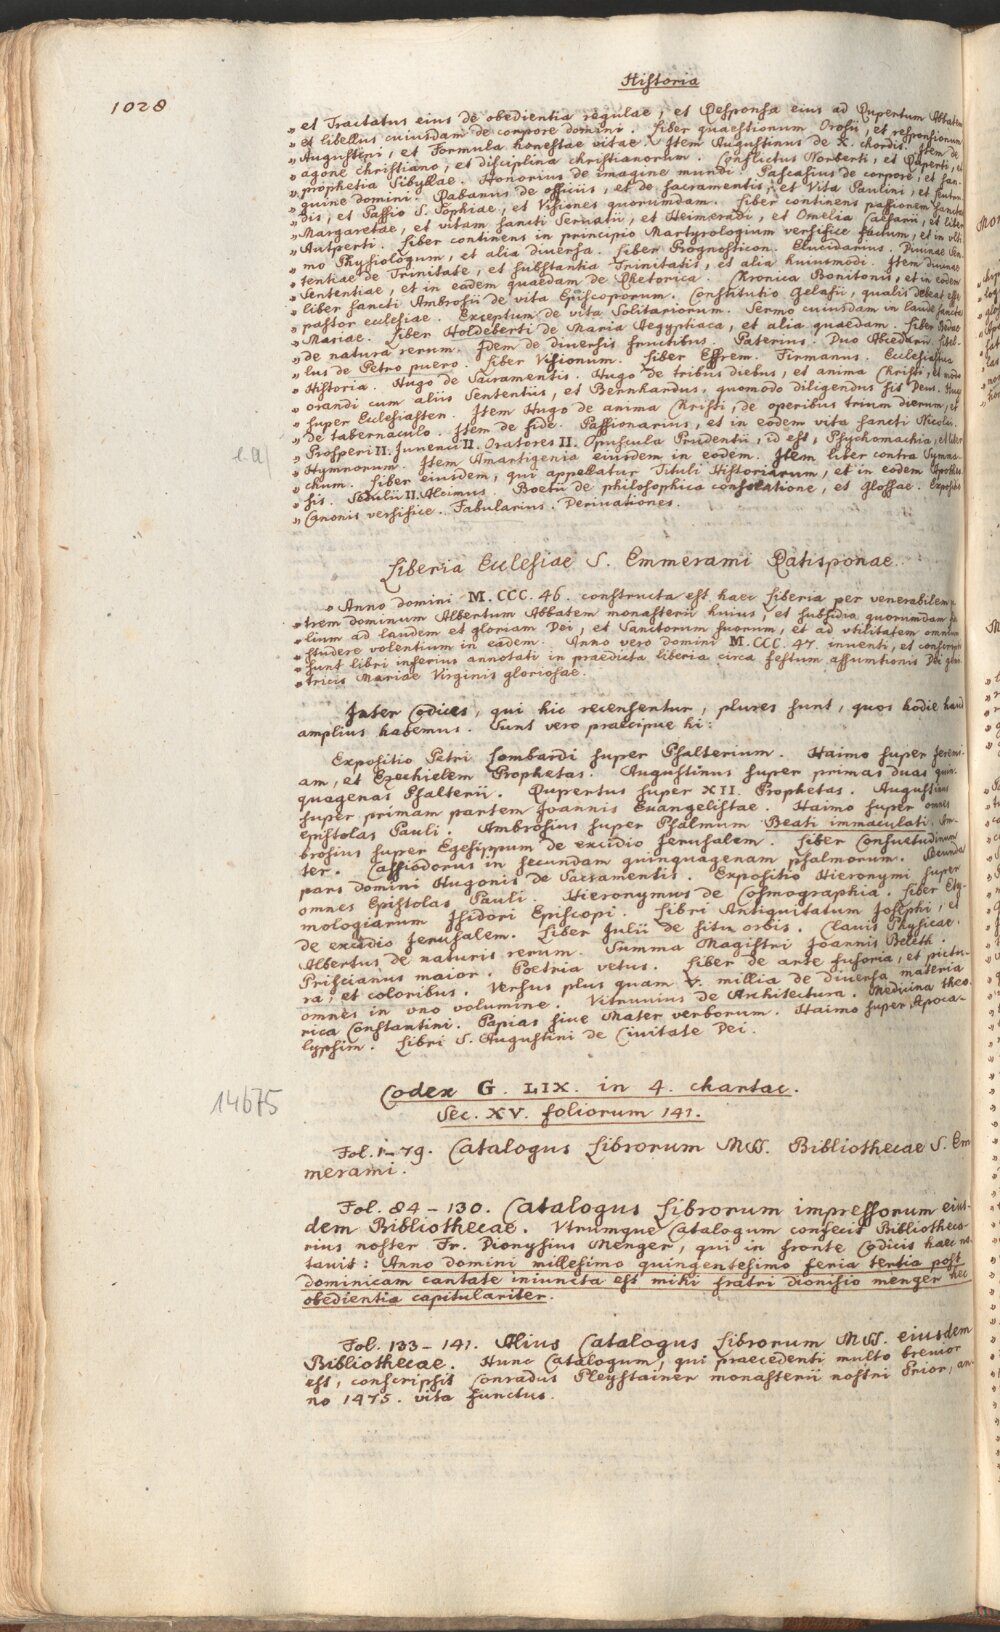 Historia
1028
„ et Tractatus eius de obedientia regulae, et Responsa eius ad Rupertum Abbatem
„ et libellus cuiusdam de corpore domini. Liber quaestionum Orosii, et responsionum
„ Augustini, et Formula honestae vitae. Item Augustinus de X. chordis. Item de
„ agone christiano, et disciplina christianorum. Conflictus Norberti, et Ruperti, et
„ prophetia Sibyllae. Honorius de imagine mundi. Pascasius de corpore, et san-
„ guine domini. Rabanus de officiis, et de sacramentis, et Vita Paulini, et senten-
„ dis, et Passio S. Sophiae, et Visiones quorumdam. Liber continens passionem sanctae
„ Margaretae, et vitam sancti Servatii, et Heimeradi, et Omelia Caesarii, et liber
„ Autperti. Liber continens in principio Martyrologium versifice factum, et in ulti
„ mo Physiologum, et alia diversa. Liber Prognosticon. Elucidarius. Divinae Sen-
„ tentiae de Trinitate, et substantia Trinitatis, et alia huiusmodi. Item divinae
„ Sententiae, et in eadem quaedam de Rhetorica. Chronica Bonitonis, et in eodem
„ liber sancti Ambrosii de vita Episcoporum. Constitutio Gelasii, qualis debeat esse
„ pastor ecclesiae. Exceptum de vita Solitariorum. Sermo cuiusdam in laude sanctae
„ Mariae. Liber Holdeberti de Maria Aegyptiaca, et alia quaedam. Liber Bedae
„ de natura rerum. Idem de diversis fructibus. Paterius. Duo Abcedarii. Libel-
„ lus de Petro puero. Liber Visionum. Liber Effrem. Firmanus. Ecclesiastica
„ Historia. Hugo de Sacramentis. Hugo de tribus diebus, et anima Christi, et modo
„ orandi cum aliis Sententiis, et Bernhardus, quomodo diligendus sit Deus. Hugo
„ super Ecclesiasten. Item Hugo de anima Christi, de operibus trium dierum, et
„ de tabernaculo. Item de fide. Passionarius, et in eodem vita sancti Nicolai.
„ Prosperi II. Iuvenci II. Oratores II. Opuscula Prudentii, id est, Psychomachia, et liber
„ Hymnorum. Item Amartigenia eiusdem in eodem. Item liber contra Symma-
„ chum. Liber eiusdem, qui appellatur Tituli Historiarum, et in eodem Apotheo-
„ sis. Sedulii II. Alcimus. Boetii de philosophica consolatione, et glossae. Expositio
„ Canonis versifice. Fabularius. Derivationes.
Liberia Ecclesiae S. Emmerami Ratisponae.
„ Anno domini M. CCC. 46. constructa est haec Liberia per venerabilem
„ trem dominum Albertum Abbatem monasterii huius, et subsidia quorumdam
„ lium ad laudem et gloriam Dei, et Sanctorum suorum, et ad utilitatem omnium
„ studere volentium in eadem. Anno vero domini M. CCC. 47. inventi, et conscripti
„ sunt libri inferius annotati in praedicta liberia circa festum assumtionis Dei geni
„ tricis Mariae Virginis gloriosae.
Inter Codices, qui hic recensentur, plures sunt, quos hodie haud
amplius habemus. Sunt vero praecipue hi:
Expositio Petri Lombardi super Psalterium. Haimo super Jeremi-
am, et Ezechielem Prophetas. Augustinus super primas duas quin-
quagenas Psalterii. Rupertus super XII. Prophetas. Augustinus
super primam partem Joannis Evangelistae. Haimo super omnes
epistolas Pauli. Ambrosius super Psalmum Beati immaculati. Am-
brosius super Egesippum de excidio Jerusalem. Liber Consuetudinum
ter. Cassiodorus in secundam quinquagenam psalmorum. Secunda
pars domini Hugonis de Sacramentis. Expositio Hieronymi super
omnes Epistolas Pauli. Hieronymus de Cosmographia. Liber Ety-
mologiarum Isidori Episcopi. Libri Antiquitatum Josephi, et
de excidio Jerusalem. Liber Julii de situ orbis. Clavis Physicae.
Albertus de naturis rerum. Summa Magistri Joannis Beleth.
Priscianus maior. Poetria vetus. Liber de arte fusoria, et pictu-
ra, et coloribus. Versus plus quam V. millia de diversa materia
omnes in uno volumine. Vitruvius de Architectura. Medicina theo
rica Constantini. Papias sive Mater verborum. Haimo super Apoca-
lypsim. Libri S. Augustini de Civitate Dei.
14675
Codex G. LIX. in 4. chartac.
Sec. XV. foliorum 141.
Fol. 1–79. Catalogus Librorum MSS. Bibliothecae S. Em
merami.
Fol. 84 – 130. Catalogus Librorum impressorum eius-
dem Bibliothecae. Utrumque Catalogum confecit Bibliotheca-
rius noster Fr. Dionysius Menger, qui in fronte Codicis haec no
tavit: Anno domini millesimo quingentesimo feria tertia post
dominicam cantate iniuncta est mihi fratri dionisio menger hec
obedientia capitulariter.
Fol. 133 – 141. Alius Catalogus Librorum MSS. eiusdem
Bibliothecae. Hunc Catalogum, qui praecedenti multo brevior
est, conscripsit Conradus Pleystainer monasterii nostri Prior, an-
no 1475. vita functus.